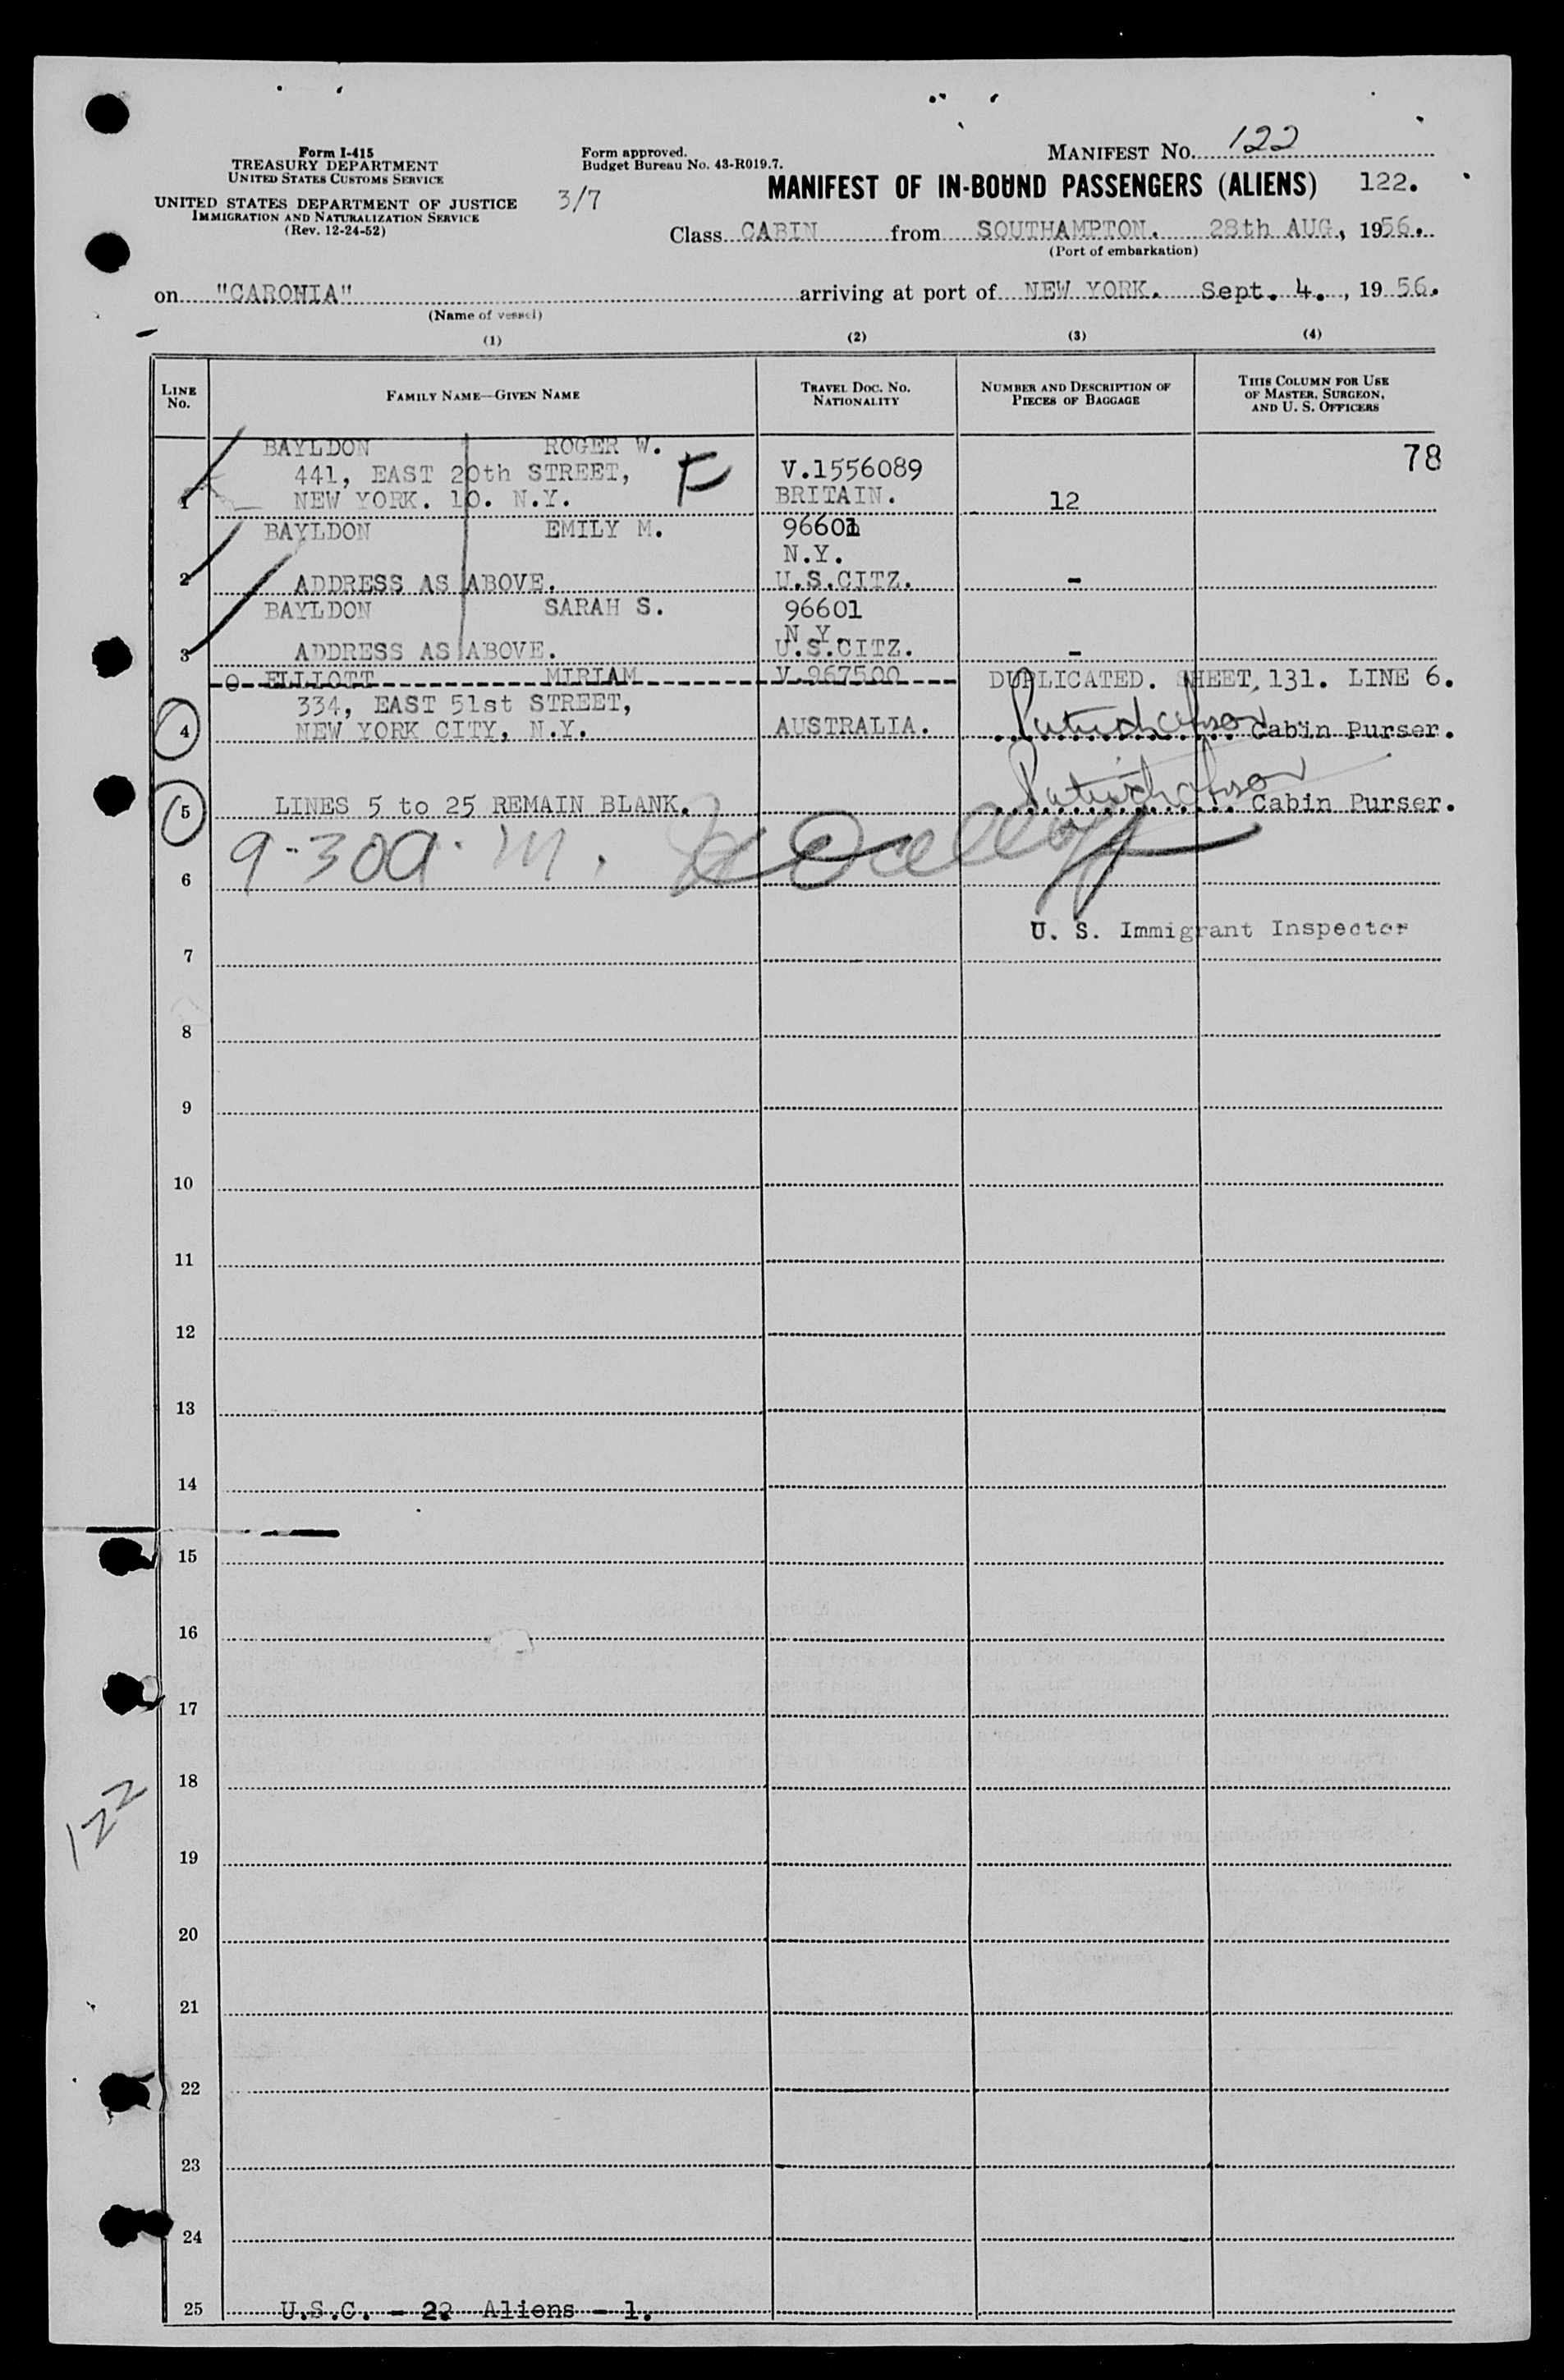 Form I-415
TREASURY DEPARTMENT
UNITED STATES CUSTOMS SERVICE
UNITED STATES DEPARTMENT OF JUSTICE
IMMIGRATION AND NATURALIZATION SERVICE
(Rev. 12-24-52)
Form approved.
Budget Bureau No. 43-R019.7.
3/7
MANIFEST NO. 122
MANIFEST OF IN-BOUND PASSENGERS (ALIENS) 122.
Class CABIN from SOUTHAMPTON. 28th AUG., 1956.
(Port of embarkation)
on "CARONIA" arriving at port of NEW YORK. Sept. 4., 1956.
(Name of vessel)
(1) (2) (3) (4)
LINE NO. FAMILY NAME—GIVEN NAME TRAVEL DOC. NO. NATIONALITY NUMBER AND DESCRIPTION OF PIECES OF BAGGAGE THIS COLUMN FOR USE OF MASTER, SURGEON, AND U. S. OFFICERS
BAYLDON ROGER W. 78
441, EAST 20th STREET, F V.1556089
1 NEW YORK. 10. N.Y. BRITAIN. 12
BAYLDON EMILY M. 96601
N.Y.
2 ADDRESS AS ABOVE. U.S.CITZ. -
BAYLDON SARAH S. 96601
N.Y.
3 ADDRESS AS ABOVE. U.S.CITZ. -
O ELLIOTT MIRIAM V.967500 DUPLICATED. SHEET, 131. LINE 6.
334, EAST 51st STREET,
4 NEW YORK CITY, N.Y. AUSTRALIA. Cabin Purser.
5 LINES 5 to 25 REMAIN BLANK. Cabin Purser.
9-30a.m.
6
U. S. Immigrant Inspector
7
8
9
10
11
12
13
14
15
16
17
18
122
19
20
21
22
23
24
25 U.S.C. - 2 Aliens - 1.